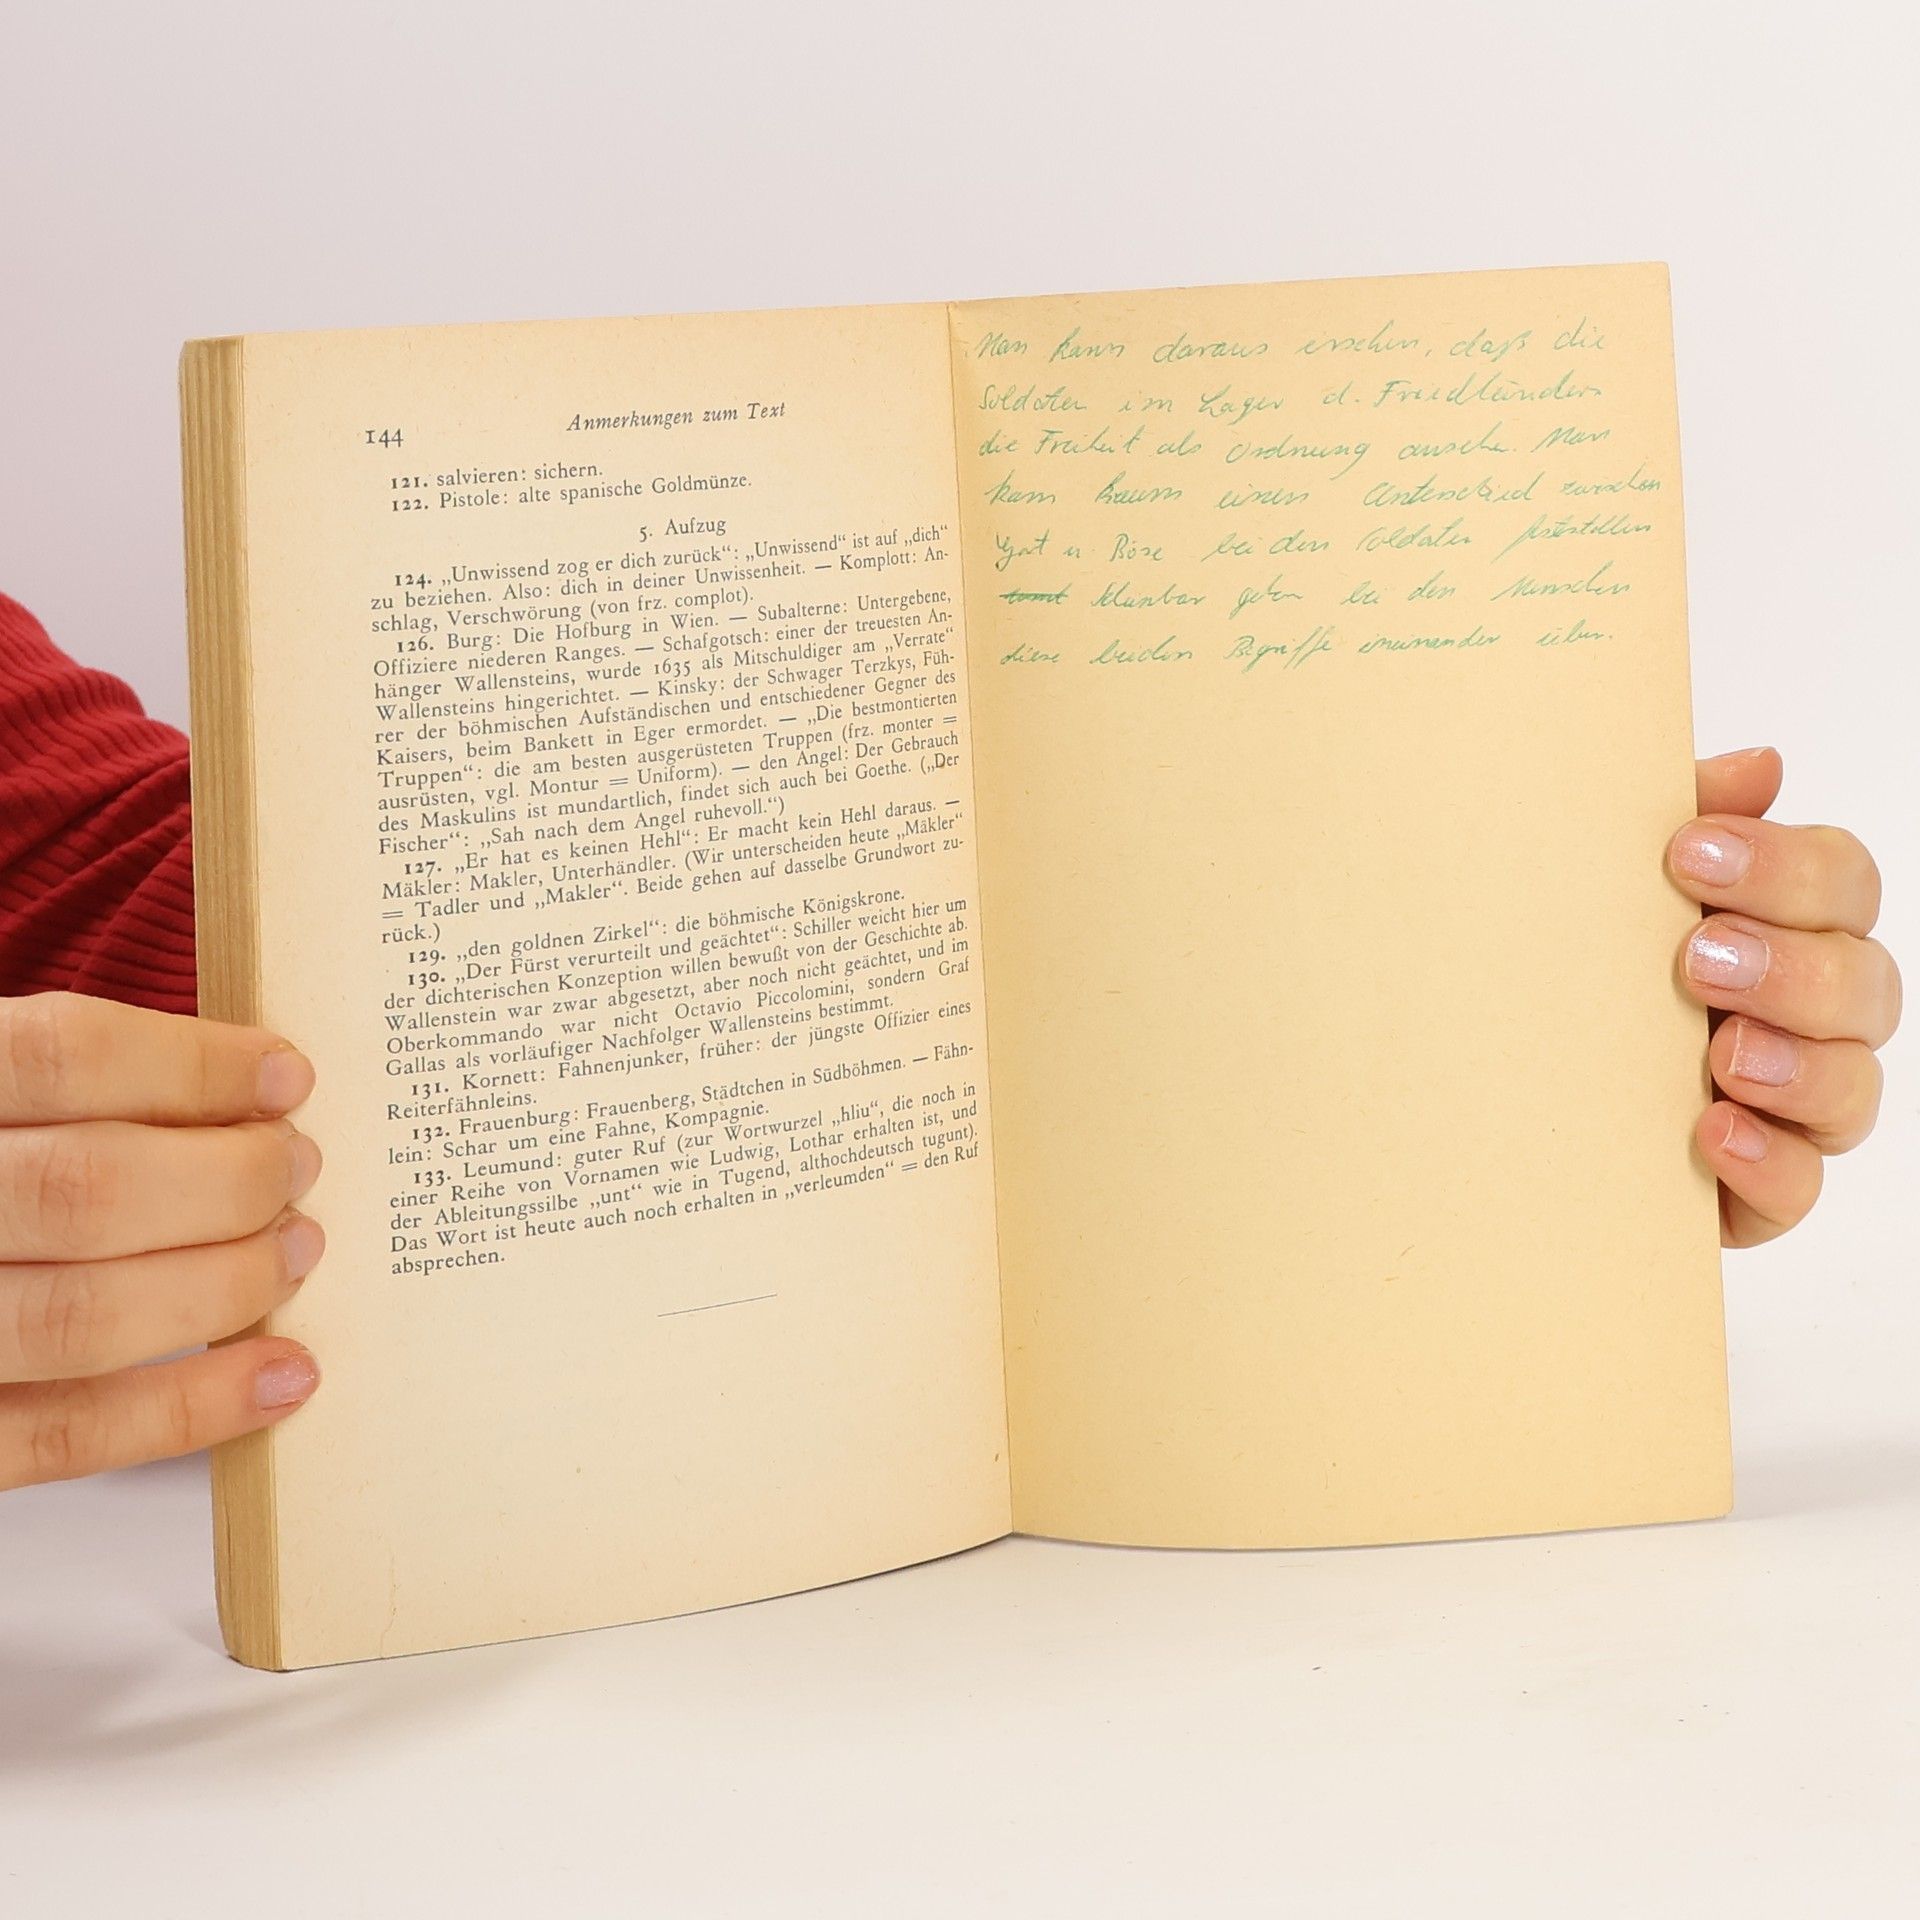 144
Anmerkungen zum Text
121. salvieren: sichern.
122. Pistole: alte spanische Goldmünze.
5. Aufzug
124. „Unwissend zog er dich zurück“: „Unwissend“ ist auf „dich“
zu beziehen. Also: dich in deiner Unwissenheit. — Komplott: An-
schlag, Verschwörung (von frz. complot).
126. Burg: Die Hofburg in Wien. — Subalterne: Untergebene,
Offiziere niederen Ranges. — Schafgotsch: einer der treuesten An-
hänger Wallensteins, wurde 1635 als Mitschuldiger am „Verrate“
Wallensteins hingerichtet. — Kinsky: der Schwager Terzkys, Füh-
rer der böhmischen Aufständischen und entschiedener Gegner des
Kaisers, beim Bankett in Eger ermordet. — „Die bestmontierten
Truppen“: die am besten ausgerüsteten Truppen (frz. monter =
ausrüsten, vgl. Montur = Uniform). — den Angel: Der Gebrauch
des Maskulins ist mundartlich, findet sich auch bei Goethe. („Der
Fischer“: „Sah nach dem Angel ruhevoll.“)
127. „Er hat es keinen Hehl“: Er macht kein Hehl daraus. —
Mäkler: Makler, Unterhändler. (Wir unterscheiden heute „Mäkler“
= Tadler und „Makler“. Beide gehen auf dasselbe Grundwort zu-
rück.)
129. „den goldnen Zirkel“: die böhmische Königskrone.
130. „Der Fürst verurteilt und geächtet“: Schiller weicht hier um
der dichterischen Konzeption willen bewußt von der Geschichte ab.
Wallenstein war zwar abgesetzt, aber noch nicht geächtet, und im
Oberkommando war nicht Octavio Piccolomini, sondern Graf
Gallas als vorläufiger Nachfolger Wallensteins bestimmt.
131. Kornett: Fahnenjunker, früher: der jüngste Offizier eines
Reiterfähnleins.
132. Frauenburg: Frauenberg, Städtchen in Südböhmen. — Fähn-
lein: Schar um eine Fahne, Kompagnie.
133. Leumund: guter Ruf (zur Wortwurzel „hliu“, die noch in
einer Reihe von Vornamen wie Ludwig, Lothar erhalten ist, und
der Ableitungssilbe „unt“ wie in Tugend, althochdeutsch tugunt).
Das Wort ist heute auch noch erhalten in „verleumden“ = den Ruf
absprechen.
Man kann daraus ersehen, daß die
Soldaten im Lager d. Friedländers
die Freiheit als Ordnung ansehen. Man
kann kaum einen Unterschied zwischen
Gut u. Böse bei den Soldaten feststellen
Scheinbar gehen bei den Menschen
diese beiden Begriffe ineinander über.